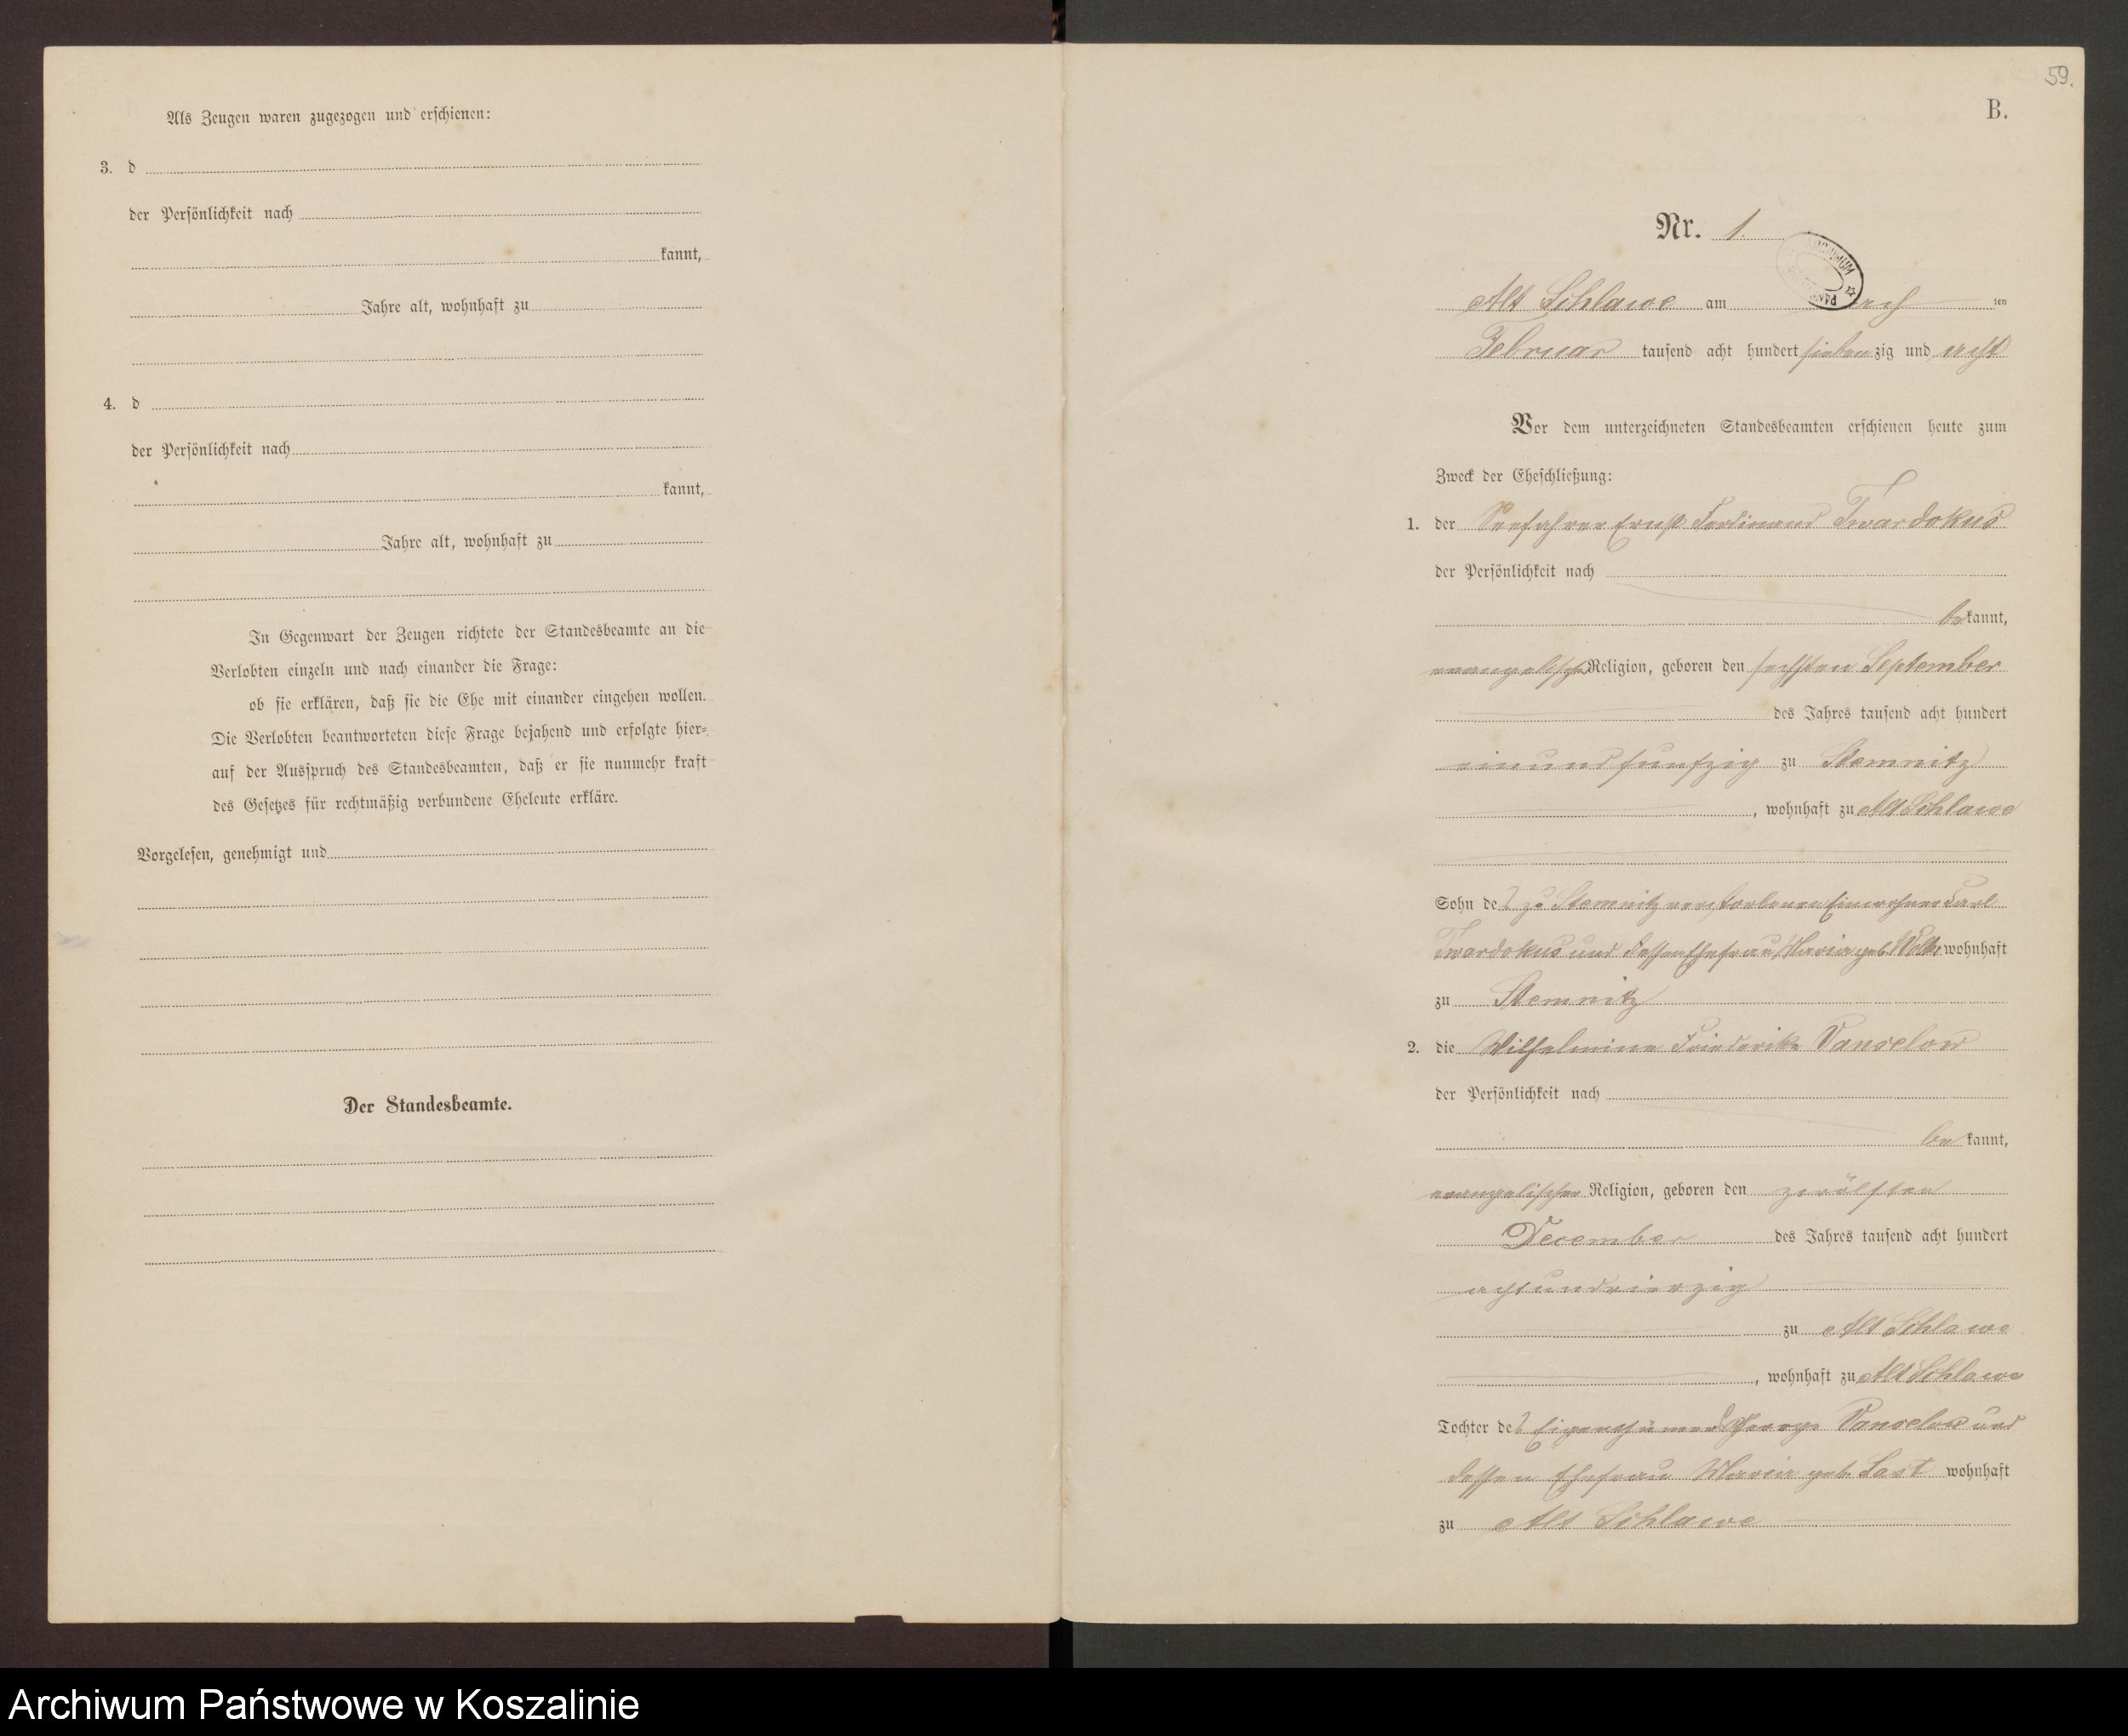 Als Zeugen waren zugezogen und erschienen:
3. d
der Persönlichkeit nach
kannt,
Jahre alt, wohnhaft zu
4. d
der Persönlichkeit nach
kannt,
Jahre alt, wohnhaft zu
In Gegenwart der Zeugen richtete der Standesbeamte an die
Verlobten einzeln und nach einander die Frage:
ob sie erklären, daß sie die Ehe mit einander eingehen wollen.
Die Verlobten beantworteten diese Frage bejahend und erfolgte hier-
auf der Ausspruch des Standesbeamten, daß er sie nunmehr kraft
des Gesetzes für rechtmäßig verbundene Eheleute erkläre.
Vorgelesen, genehmigt und
Der Standesbeamte.
59.
B.
Nr. 1.
Alt Schlawe am ten
Februar tausend acht hundert siebenzig und acht
Vor dem unterzeichneten Standesbeamten erschienen heute zum
Zweck der Eheschließung:
1. der Seefahrer Ernst Ferdinand Twardokus
der Persönlichkeit nach
bekannt,
evangelischer Religion, geboren den sechsten September
des Jahres tausend acht hundert
einundfunfzig zu Stemnitz
, wohnhaft zu Alt Schlawe
Sohn des zu Stemnitz verstorbenen Einwohner Carl
Twardokus und dessen Ehefrau Maria geb. wohnhaft
zu Stemnitz
2. die Wilhelmine Friederike Vanselow
der Persönlichkeit nach
bekannt,
evangelischer Religion, geboren den zwölften
December des Jahres tausend acht hundert
achtundvierzig
zu Alt Schlawe
, wohnhaft zu Alt Schlawe
Tochter des Eigenthümers George Vanselow und
dessen Ehefrau Maria geb. Last wohnhaft
zu Alt Schlawe
Archiwum Państwowe w Koszalinie